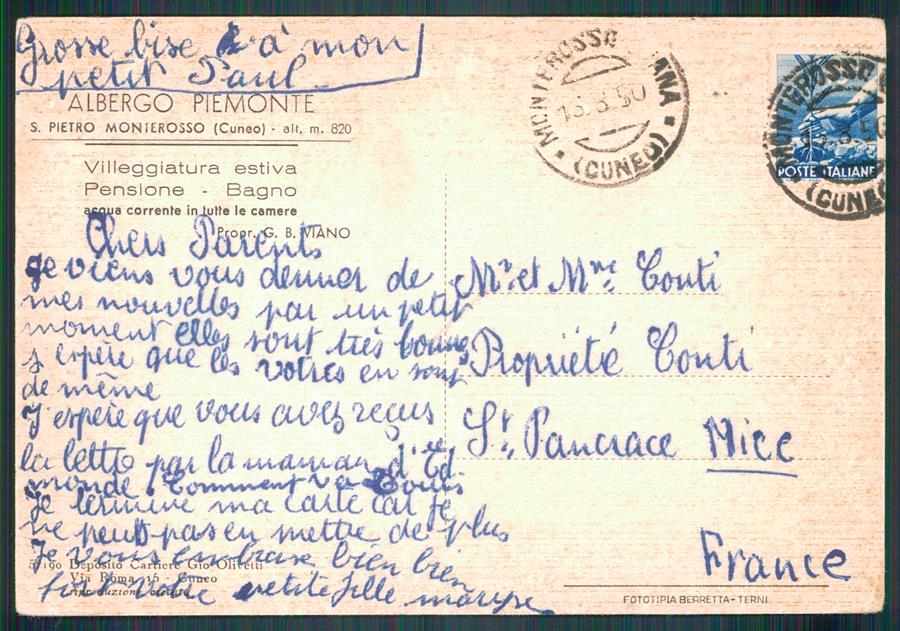 Grosse bise à mon
petit Paul
ALBERGO PIEMONTE
S. PIETRO MONTEROSSO (Cuneo) - alt. m. 820
Villeggiatura estiva
Pensione - Bagno
acqua corrente in tutte le camere
Propr. G. B. VIANO
MONTEROSSO GRANA
13.8.50
(CUNEO)
MONTEROSSO
13.8.50
(CUNEO)
POSTE ITALIANE
Chers Parents
Je viens vous donner de
mes nouvelles par un petit
moment elles sont très bonnes
j espère que les votres en sont
de même
J'espère que vous avez reçus
la lettre par la maman d'Ed
monde. Comment va Louis
Je termine ma carte car je
ne peut pas en mettre de plus
Je vous embrasse bien bien
fort Votre petite fille
Mr. et Mme. Conti
Propriété Conti
St. Pancrace Nice
France
57190 Deposito Cartiere Gio Olivetti
Via Roma 15 - Cuneo
riproduzione vietata
FOTOTIPIA BERRETTA-TERNI